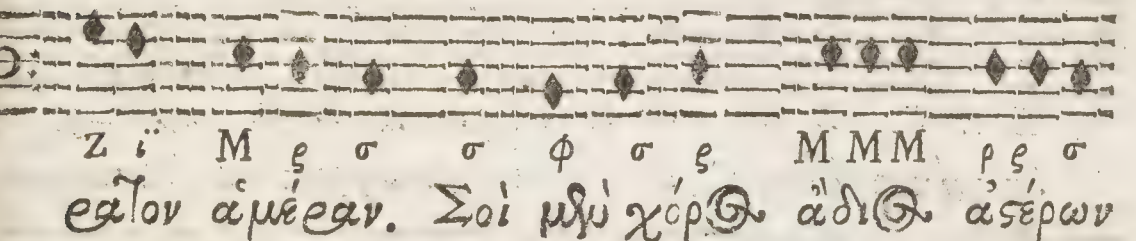 Ζ ϊ Μ ρ σ σ φ σ ρ Μ Μ Μ ρ ρ σ
ρατον ἁμέραν. Σοὶ μὲν χόρος ἄδιος ἀστέρων